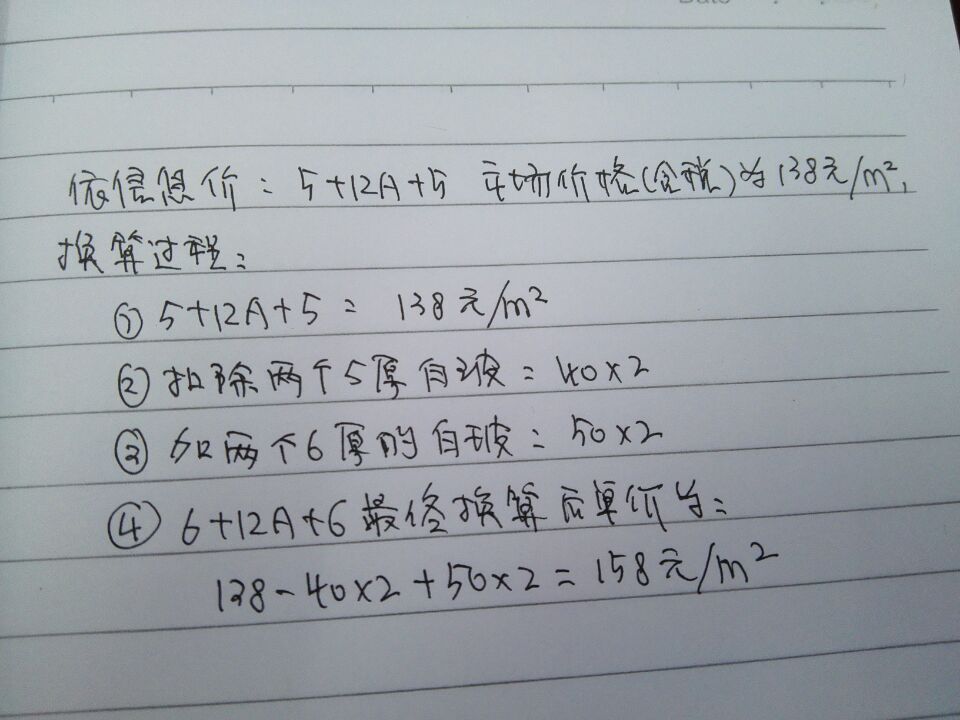 依信息价：5+12A+5 市场价格(含税)为138元/m²,
换算过程：
① 5+12A+5 = 138元/m²
② 扣除两个5厚白玻：40×2
③ 加两个6厚的白玻：50×2
④ 6+12A+6最终换算后单价为：
138-40×2+50×2=158元/m²